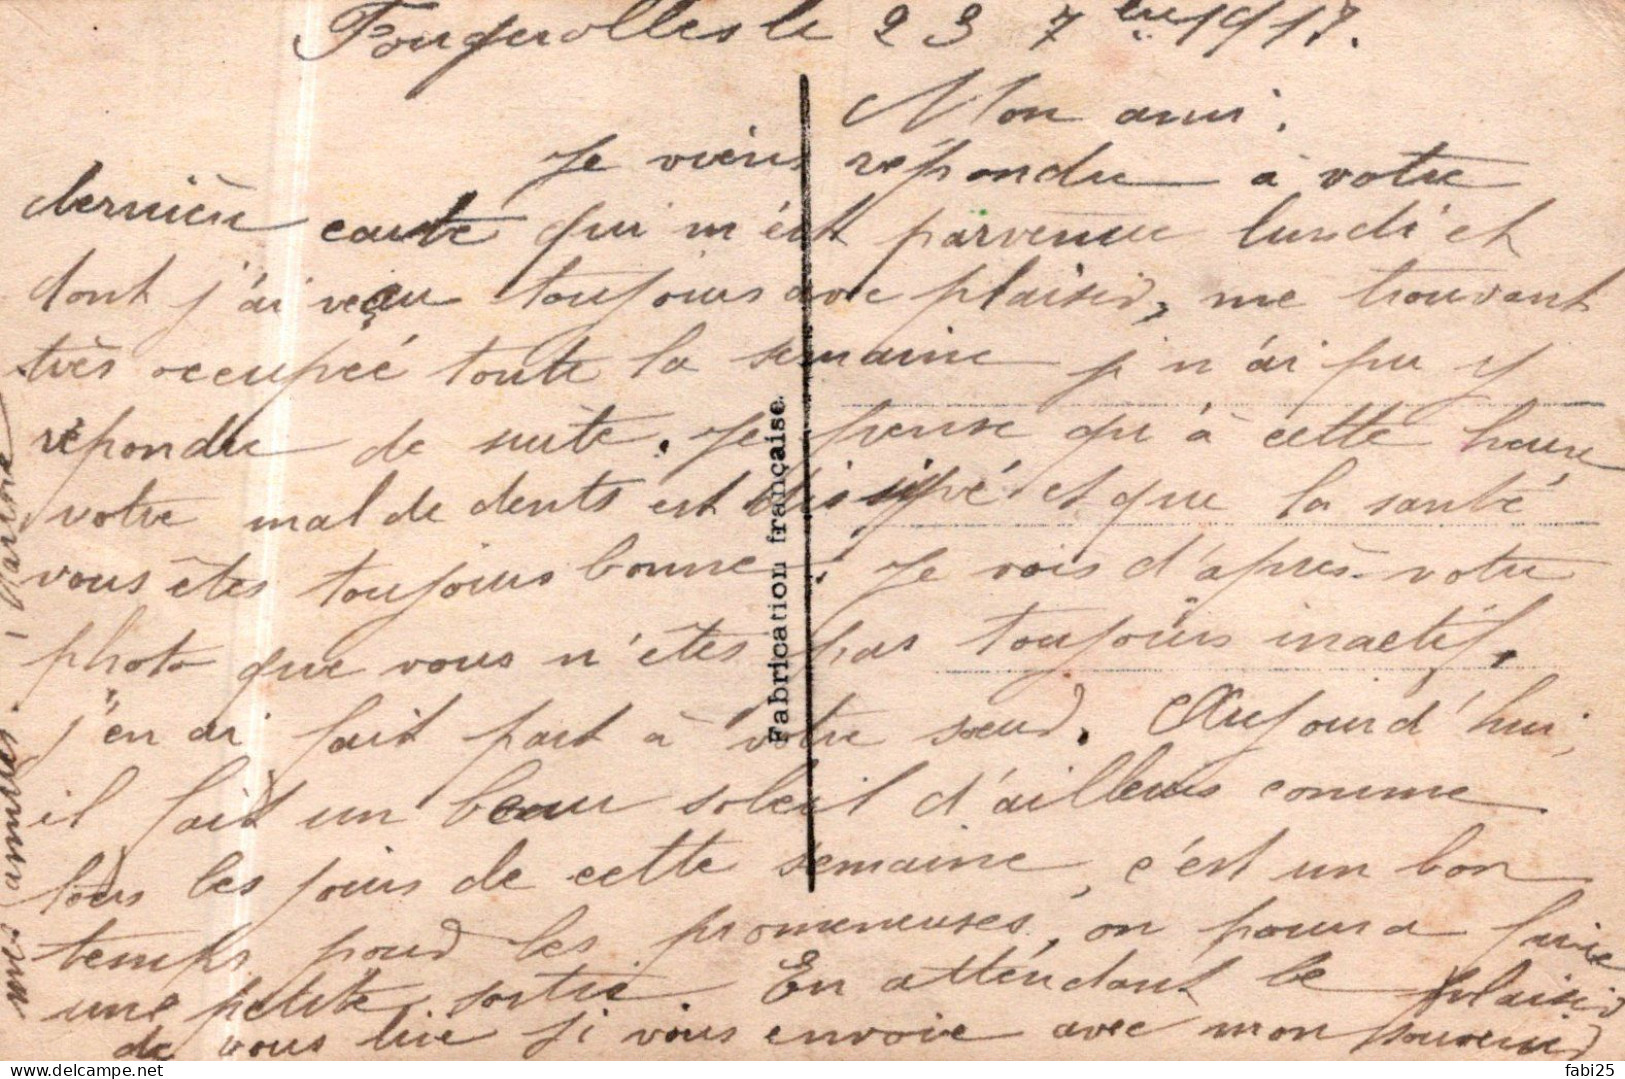 Fougerolles le 23 7bre 1917.
Mon ami.
Je viens répondre à votre
dernière carte qui m'est parvenue lundi et
dont j'ai reçu toujours avec plaisir, me trouvant
très occupée toute la semaine j n'ai pu y
répondre de suite. Je pense qu'à cette heure
votre mal de dents est dissipé et que la santé
vous êtes toujours bonne. Je vois d'après votre
photo que vous n'êtes pas toujours inactif.
j'en ai fait part à votre sœur. Aujourd'hui,
il fait un beau soleil d'ailleurs comme
tous les jours de cette semaine, c'est un bon
temps pour les promeneuses, on pourra faire
une petite sortie. En attendant le plaisir
de vous lire je vous envoie avec mon souvenir
mes amitiés.
Fabrication française.
fabi25